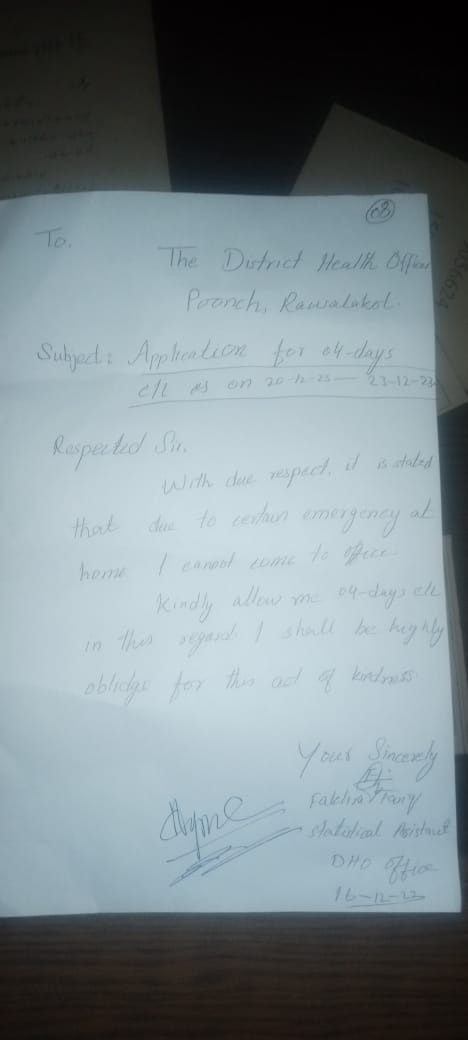 03
To.
The District Health Officer
Poonch, Rawalakot.
Subject: Application for 04-days
c/l as on 20-12-23 — 23-12-23
Respected Sir,
With due respect, it is stated
that due to certain emergency at
home I cannot come to office
Kindly allow me 04-days c/l
in this regard. I shall be highly
oblidge for this act of kindness
Your Sincerely
Statistical Assistant
DHO Office
16-12-23